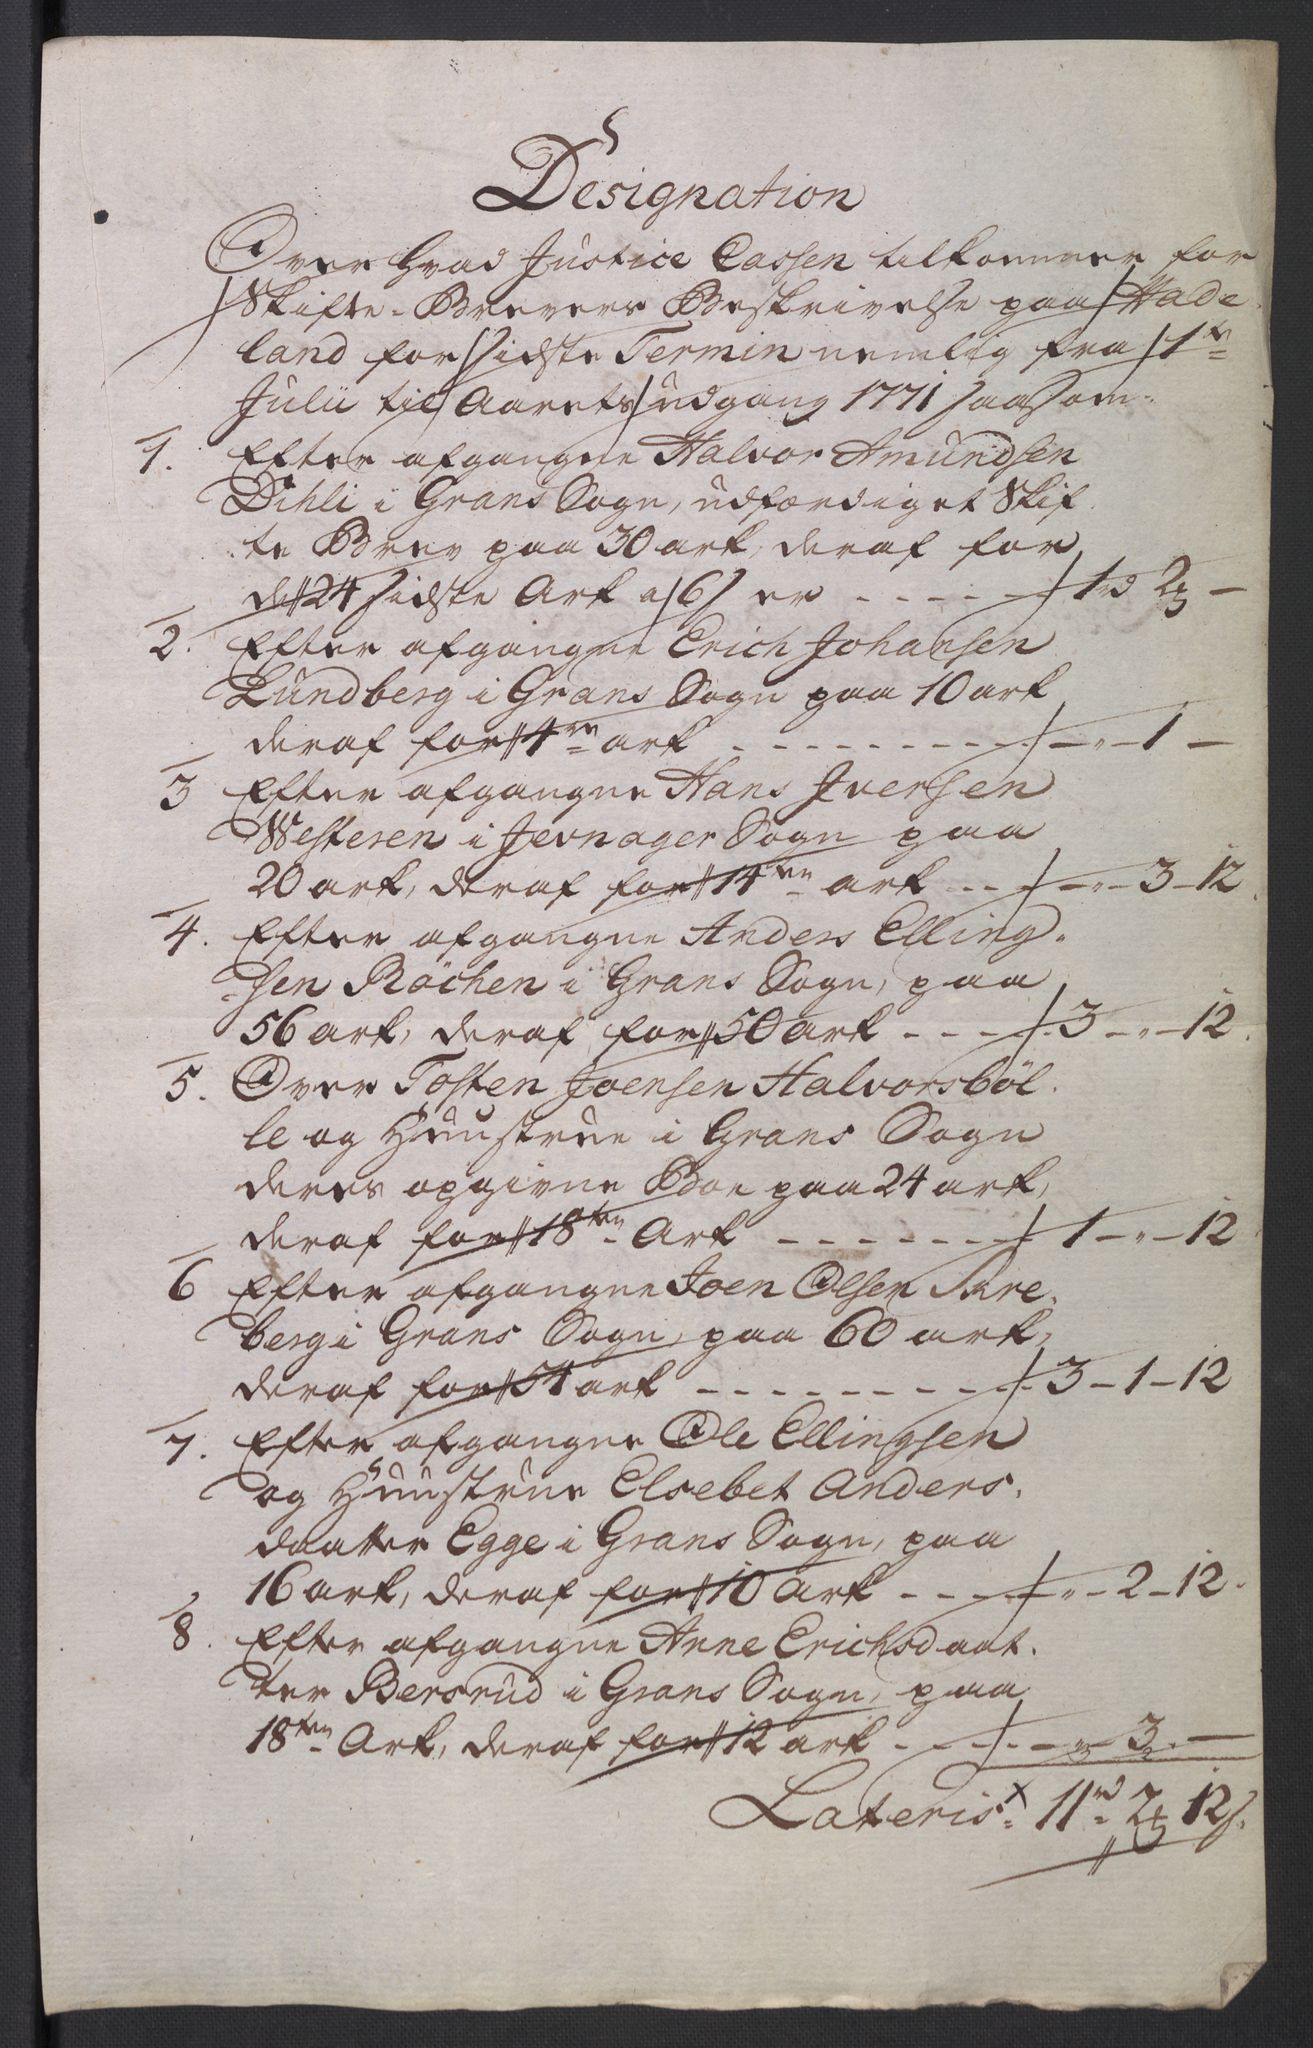 Designation
Over Hvad Justice Cassen tilkommer for
Skifte-Brevers Beskrivelse paa Hade
land for sidste Termin nemlig fra 1te
Julii til Aarets udgang 1771 saasom.
1. Efter afgangne Halvor Amundsen
Dihli i Grans Sogn, udfærdiget Skif
te Brev paa 30 ark, deraf for
de 24 sidste Ark a 6 s er - - - - - 1 rd 2 ß -
2. Efter afgangne Erich Johansen
Lundberg i Grans Sogn paa 10 ark
deraf for 4re ark - - - - - - - - - „ - 1 -
3 Efter afgangne Hans Iversen
Westeren i Jevnager Sogn paa
20 ark, deraf for 14ten ark - - - - „ - 3 - 12
4. Efter afgangne Anders Elling-
sen Röchen i Grans Sogn, paa
56 ark, deraf for 50 ark - - - 3 - „ - 12.
5. Over Tosten Joensen Halvorsböl-
le og Huustrue i Grans Sogn
deres opgivne Boe paa 24 ark,
deraf for 18ten Ark - - - - - - - 1 - „ - 12
6 Efter afgangne Joen Olsen Skre-
berg i Grans Sogn, paa 60 ark,
deraf for 54 ark - - - - - - - - - 3 - 1 - 12
7. Efter afgangne Ole Ellingsen
og Huustrue Elsebet Anders-
daatter Egge i Grans Sogn, paa
16 ark, deraf for 10 Ark - - - - „ - 2 - 12.
8. Efter afgangne Anne Erichsdaat-
ter Bersrud i Grans Sogn, paa
18ten Ark, deraf for 12 ark - - - - - „ - 3. -
Lateris 11 rd 2 ß 12 s.